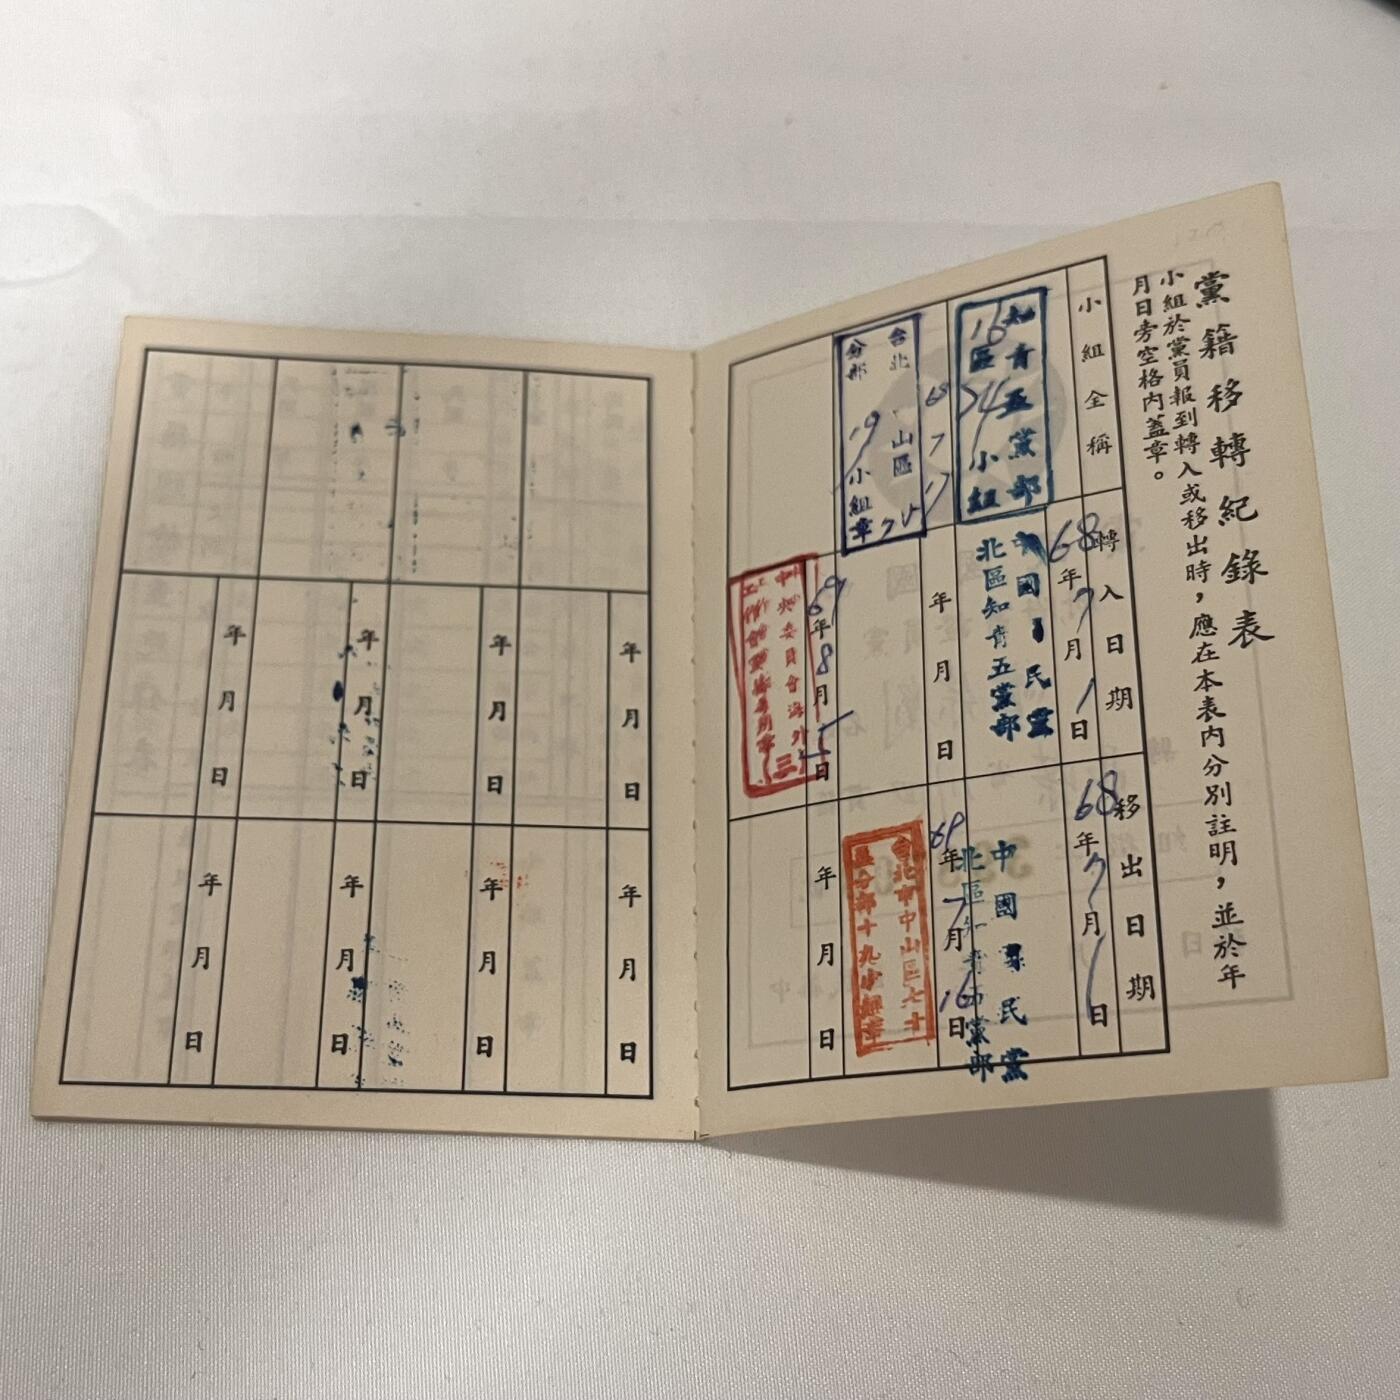 黨籍移轉紀錄表
小組於黨員報到轉入或移出時，應在本表內分別註明，並於年
月日旁空格內蓋章。
小組全稱
轉入日期
移出日期
知青五黨部
16區74小組
68年7月1日
中國國民黨
北區知青五黨部
68年7月1日
中國國民黨
北區知青五黨部
68 7 17
台北 山區75
分部19小組章
年月日
69年7月16日
台北市中山區七十
五分部十九小組章
69年8月15日
中央委員會海外
工作會
(三)
年月日
年月日
年月日
年月日
年月日
年月日
年月日
年月日
年月日